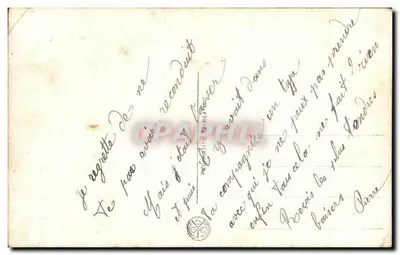 je regrette de ne
te pas avoir reconduit
Mais j'étais
et puis il y avait dans
ta compagnie un type
avec qui je ne peux pas prendre
enfin tous cela ne fait rien
Reçois les plus tendres
baisers Pierre
CPAPHIL